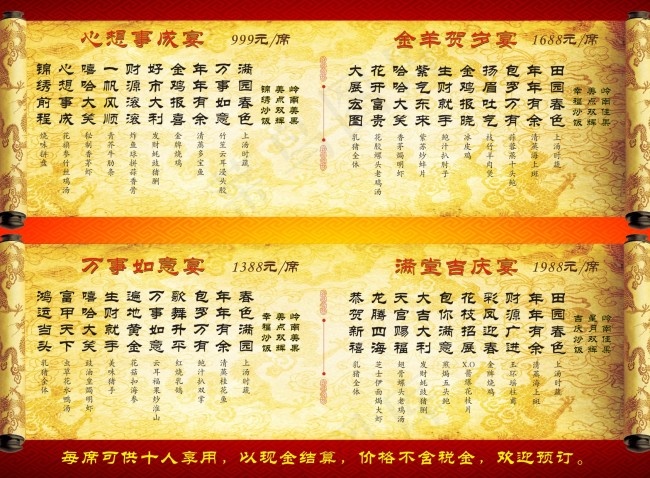 心想事成宴 999元/席
锦绣前程 烧味拼盘
心想事成 花旗参竹丝鸡汤
嘻哈大笑 秘制香茅虾
一帆风顺 青芥牛肋条
财源滚滚 炸鱼球拼蒜香骨
好市大利 发财蚝豉猪脷
金鸡报喜 金牌烧鸡
年年有余 清蒸多宝鱼
万事如意 竹笙云耳浸头胶
满园春色 上汤时蔬
锦绣炒饭
美点双辉
岭南美果
金羊贺岁宴 1688元/席
大展宏图 乳猪全体
花开富贵 花胶螺头老鸡汤
哈哈大笑 香茅焗明虾
紫气东来 紫苏炒蚌片
生财就手 鲍汁扒肘子
金鸡报晓 冰皮鸡
扬眉吐气 枝竹羊肉煲
包罗万有 蒜蓉蒸十头鲍
年年有余 清蒸海上斑
田园春色 上汤时蔬
幸福炒饭
美点双辉
岭南佳果
万事如意宴 1388元/席
鸿运当头 乳猪全体
富甲天下 虫草花水鸭汤
嘻哈大笑 豉油皇焗明虾
生财就手 美味猪手
遍地黄金 花菇扣海参
万事如意 云耳福果炒淮山
歌舞升平 红烧乳鸽
包罗万有 鲍汁扒双掌
年年有余 清蒸桂花鱼
春色满园 上汤时蔬
幸福炒饭
美点双辉
岭南美果
满堂吉庆宴 1988元/席
恭贺新禧 乳猪全体
龙腾四海 芝士伊面焗大虾
天官赐福 翅骨螺头老鸡汤
大吉大利 发财蚝豉猪脷
包你满意 煎焗五头鲍
花枝招展 X.O酱爆花枝片
彩凤迎春 金牌烧鸡
财源广进 玉环瑶柱甫
年年有余 清蒸海上斑
田园春色 上汤时蔬
吉庆炒饭
星月双辉
岭南佳果
每席可供十人享用，以现金结算，价格不含税金，欢迎预订。